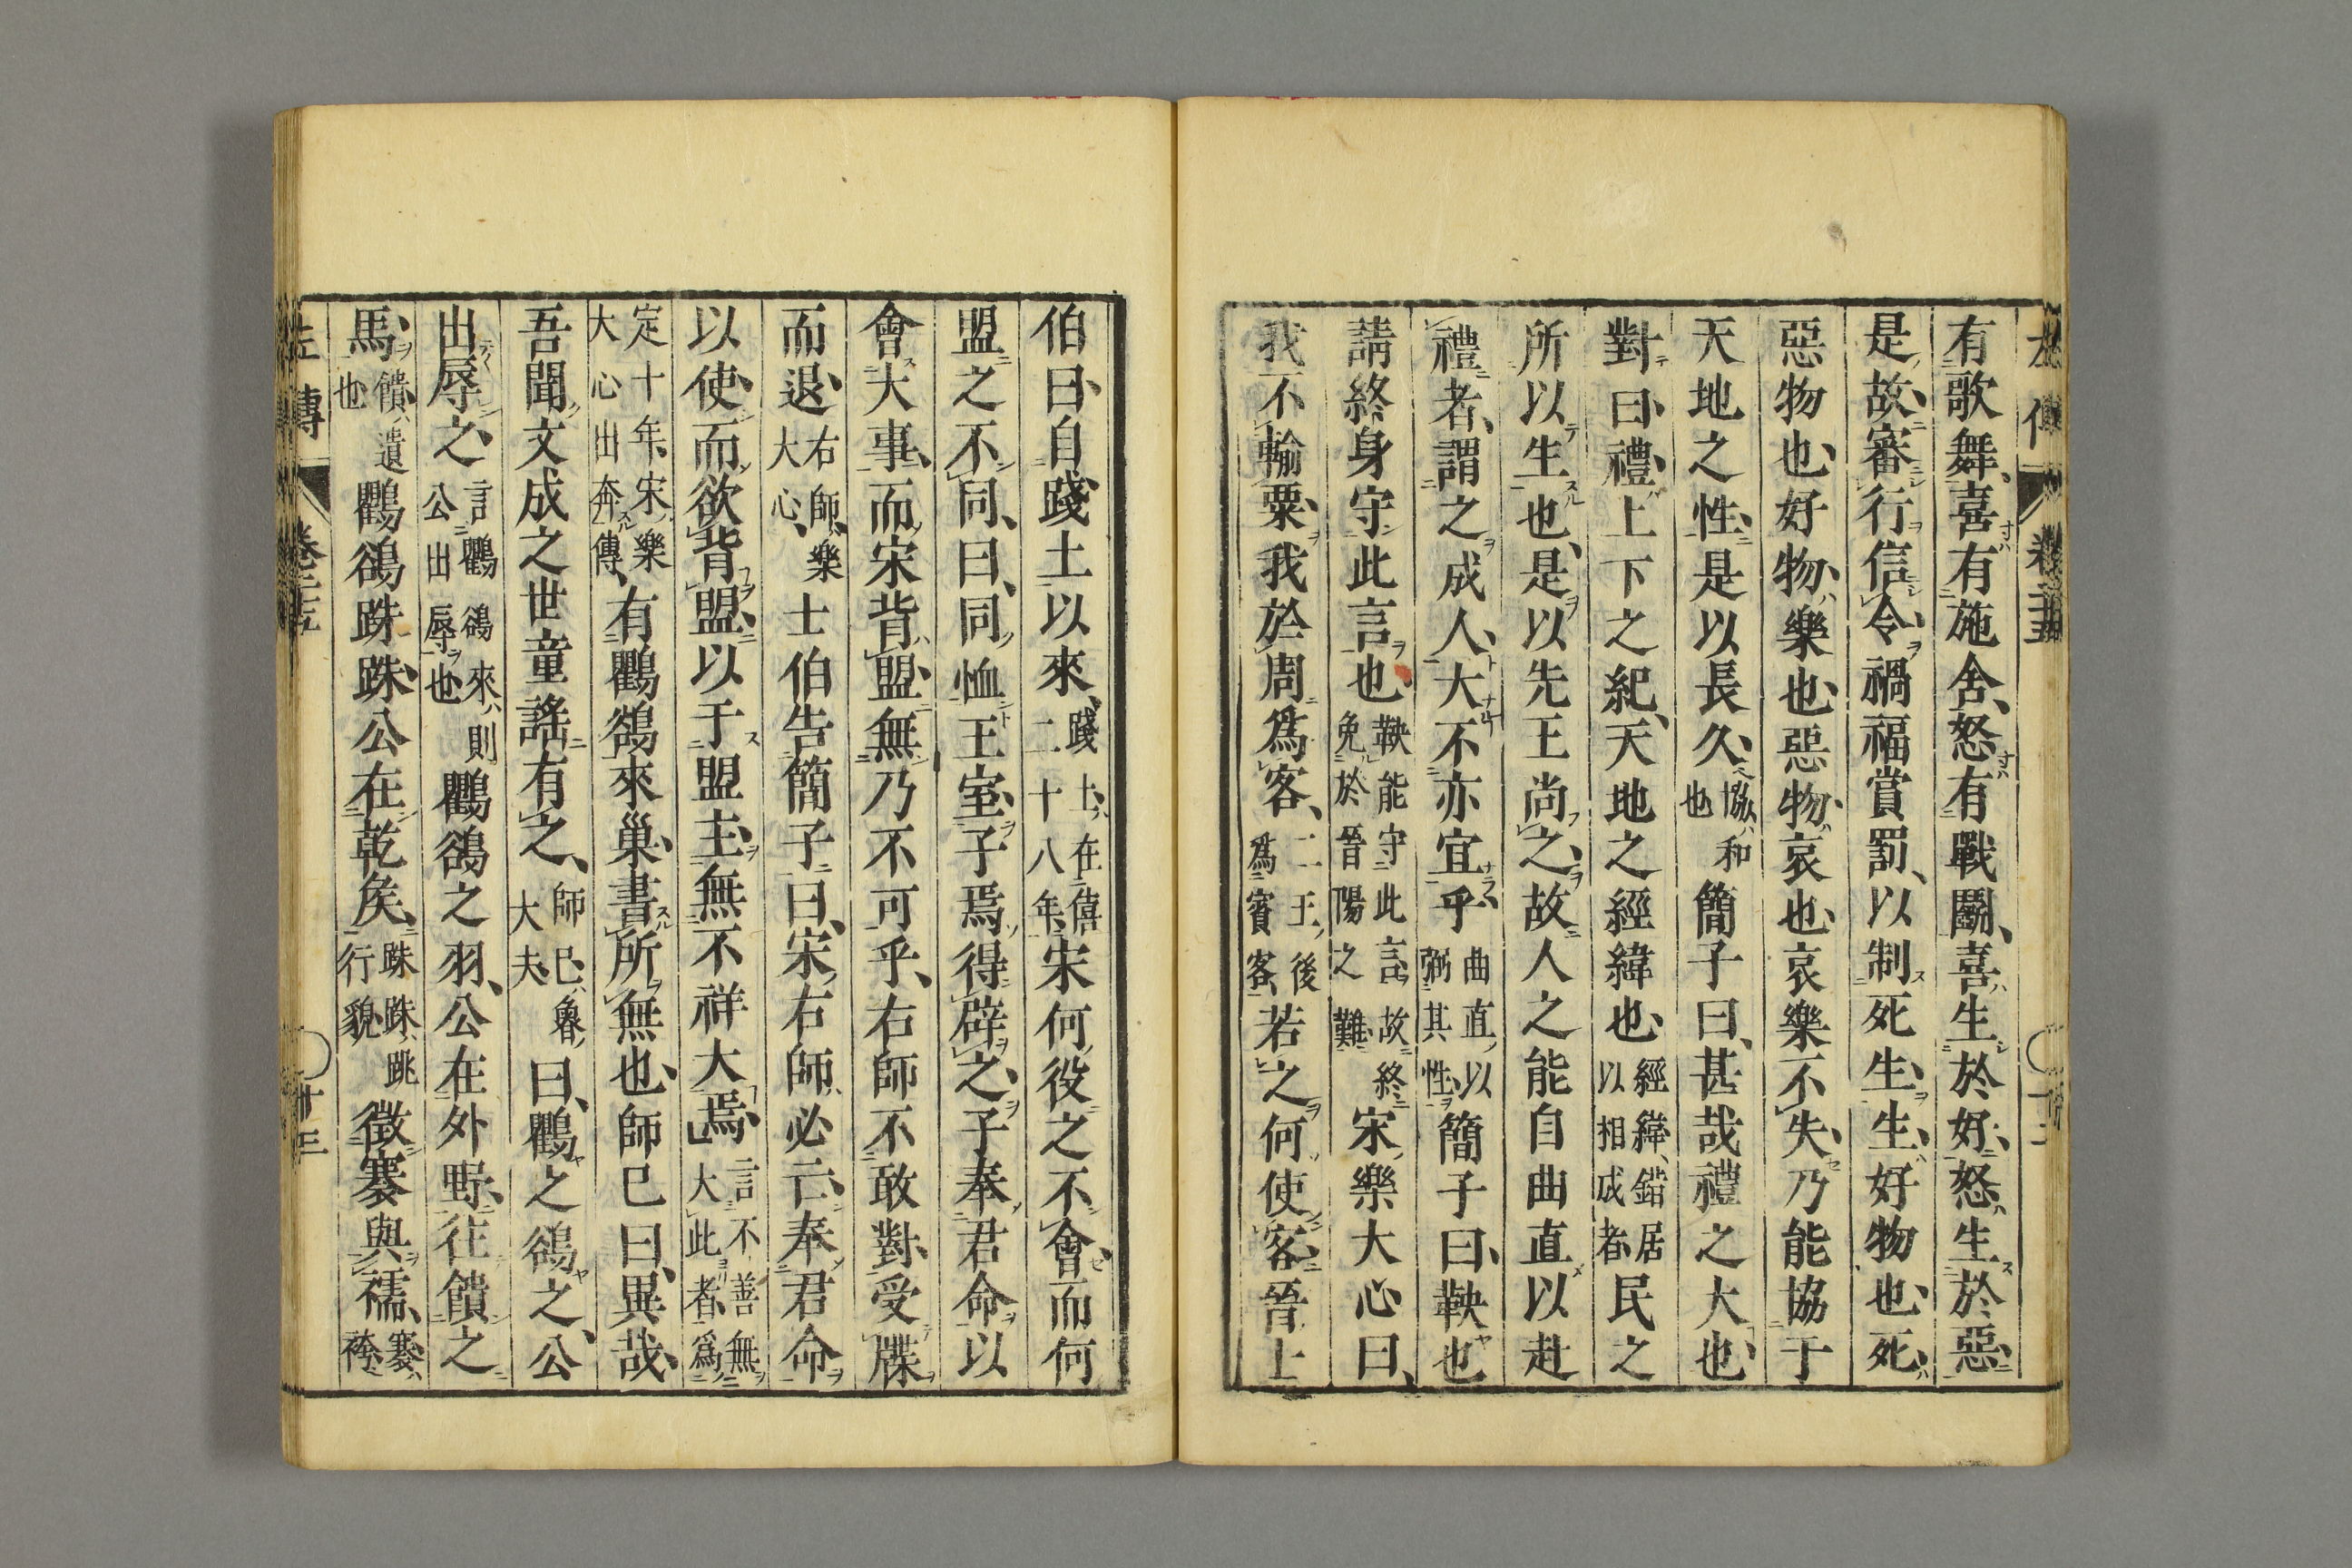 有歌舞、喜有施舍、怒有戰鬪、喜生於好、怒生於惡、
是故審行信令、禍福賞罰、以制死生、生好物也、死
惡物也、好物樂也、惡物哀也、哀樂不失、乃能協于
天地之性、是以長久、協和也簡子曰、甚哉禮之大也、
對曰、禮上下之紀、天地之經緯也、經緯、錯居以相成者民之
所以生也、是以先王尚之、故人之能自曲直以赴
禮者、謂之成人、大不亦宜乎、曲直以弼其性、簡子曰、鞅也
請終身守此言也鞅能守此言故終免於晉陽之難宋樂大心曰、
我不輸粟、我於周爲客、二王後爲賓客若之何使客、晉士
伯曰、自踐土以來、踐土、在僖二十八年、宋何役之不會、而何
盟之不同、曰、同恤王室、子焉得辟之、子奉君命、以
會大事、而宋背盟、無乃不可乎、右師不敢對、受牒
而退、右師、樂大心、士伯告簡子曰、宋右師必亡、奉君命
以使、而欲背盟、以于盟主、無不祥大焉、言不善無大此者、爲
定十年、宋樂大心出奔傳、有鸜鵒來巢、書所無也、師已曰、異哉、
吾聞文成之世、童謠有之、師已、魯大夫曰、鸜之鵒之、公
出辱之、言鸜鵒來、則公出辱也鸜鵒之羽、公在外野、往饋之
馬、饋、遺也鸜鵒跦跦、公在乾侯、跦跦、跳行貌徵褰與襦、褰、袴
左傳
卷二十五
十三